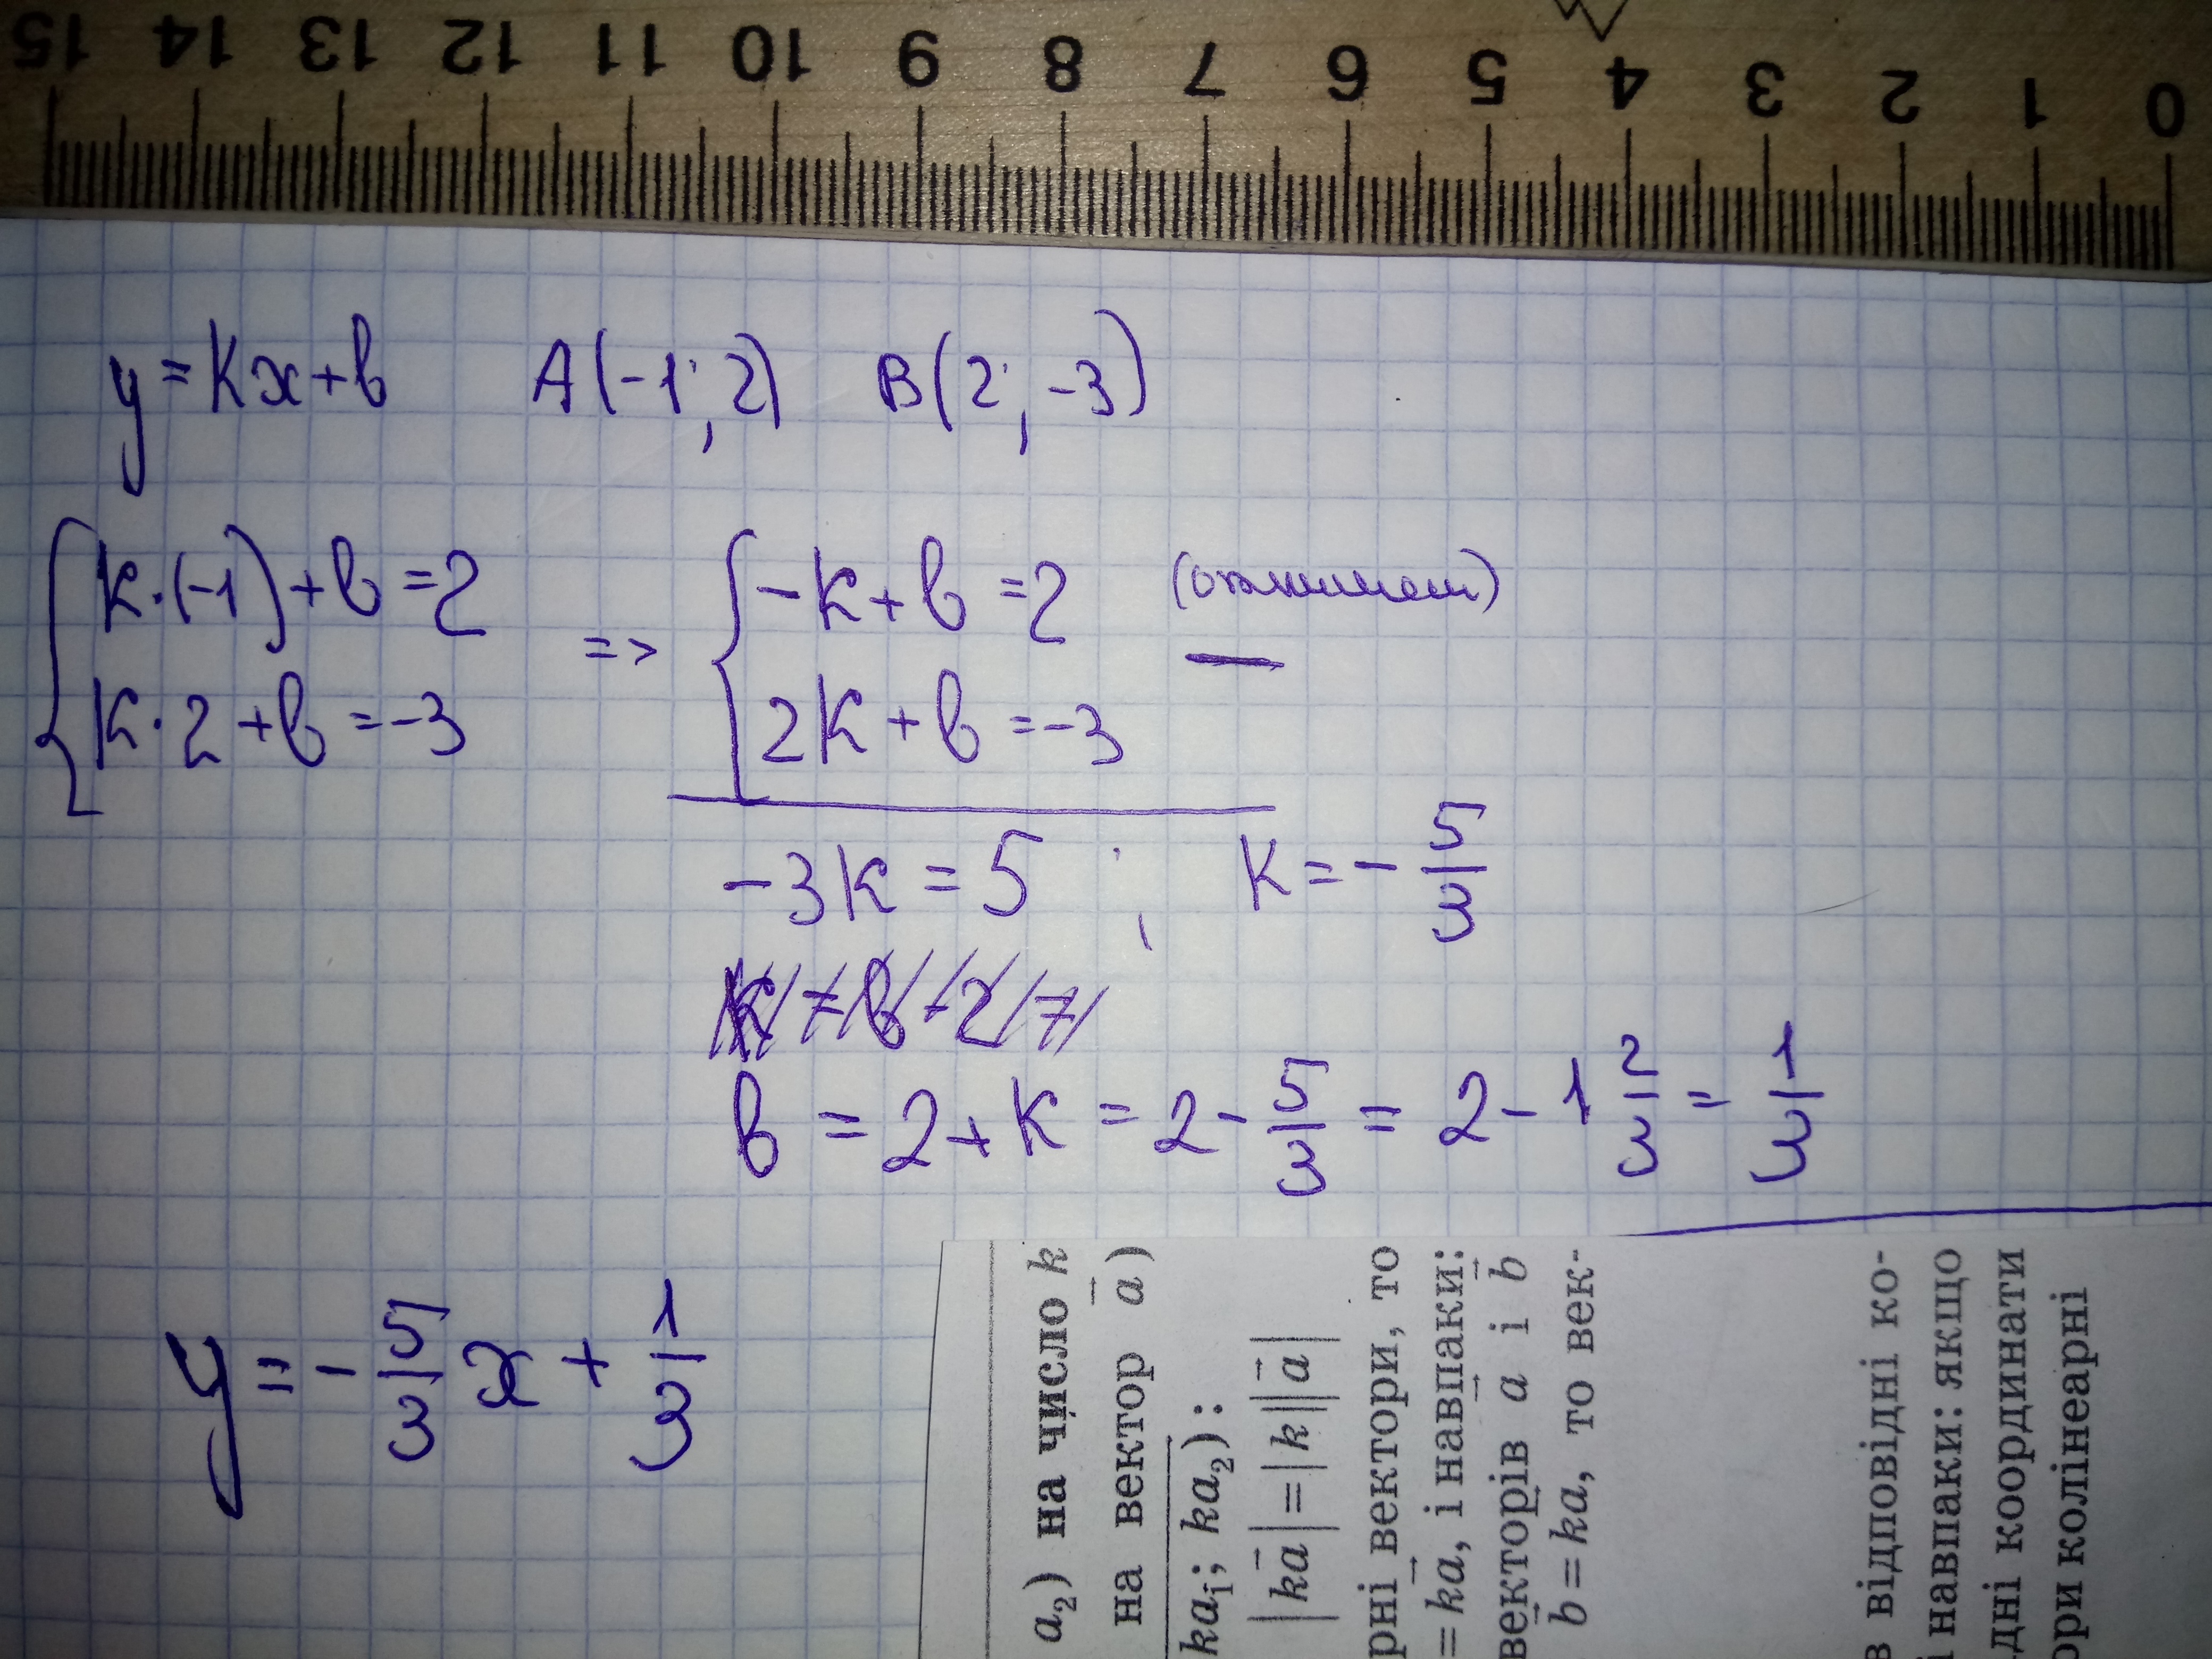 15 14 13 12 11 10 9 8 7 6 5 4 3 2 1 0
y = kx + b A(-1; 2) B(2; -3)
{ k·(-1) + b = 2 => { -k + b = 2
k·2 + b = -3 2k + b = -3
-3k = 5 ; k = - 5/3
b = 2 + k = 2 - 5/3 = 2 - 1 2/3 = 1/3
y = - 5/3 x + 1/3
a₂) на число k
на вектор a⃗)
ka₁; ka₂):
|ka⃗| = |k||a⃗|
рні вектори, то
= ka⃗, і навпаки:
векторів a⃗ і b⃗
b⃗ = ka⃗, то век-
в відповідні ко-
і навпаки: якщо
дні координати
ори колінеарні